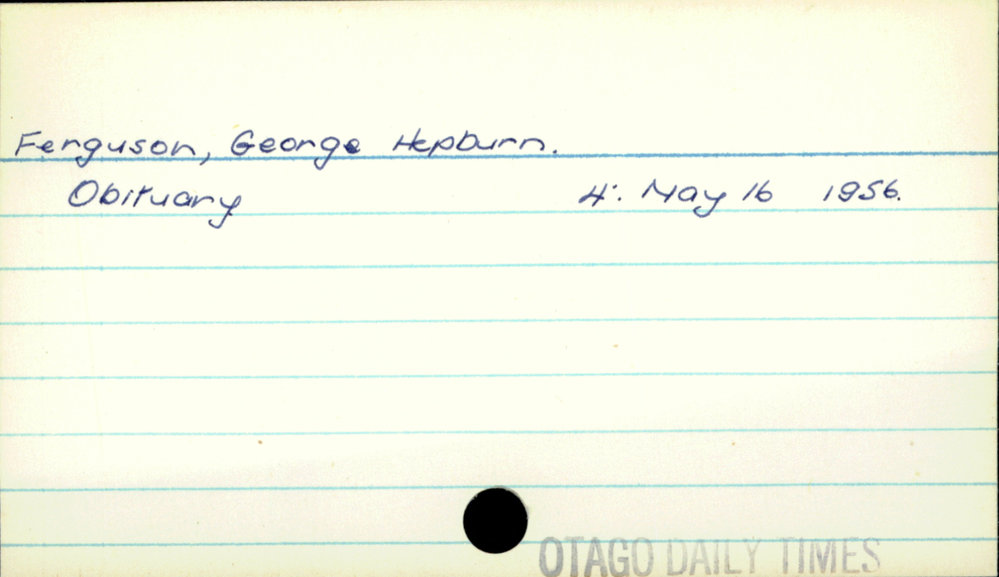 Ferguson, George Hepburn.
Obituary 4: May 16 1956.
OTAGO DAILY TIMES